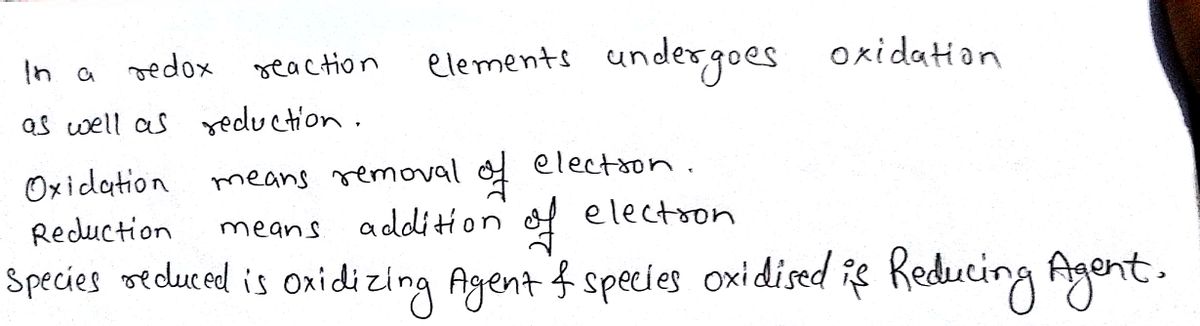 In a redox reaction elements undergoes oxidation
as well as reduction.
Oxidation means removal of electron.
Reduction means addition of electron
Species reduced is oxidizing Agent & species oxidised is Reducing Agent.